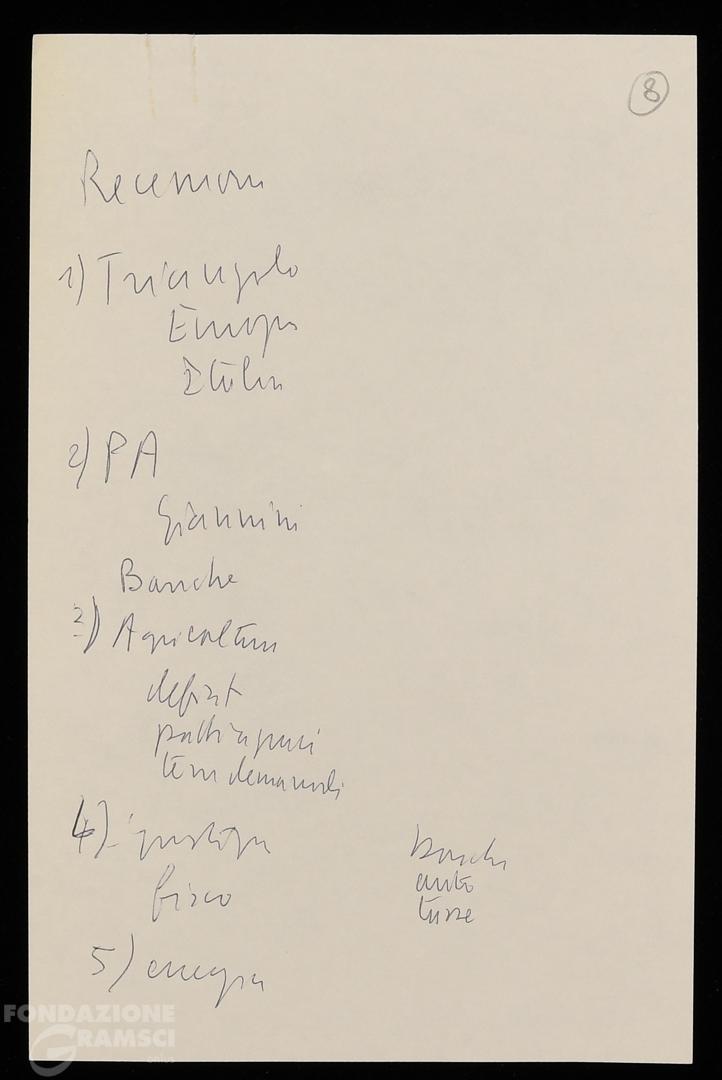 8
Recessione
1) Triangolo
Europa
Italia
2) PA
Giannini
Banche
3) Agricoltura
deficit
patti agrari
terre demaniali
4)
fisco
auto
5) energia
FONDAZIONE
GRAMSCI
onlus